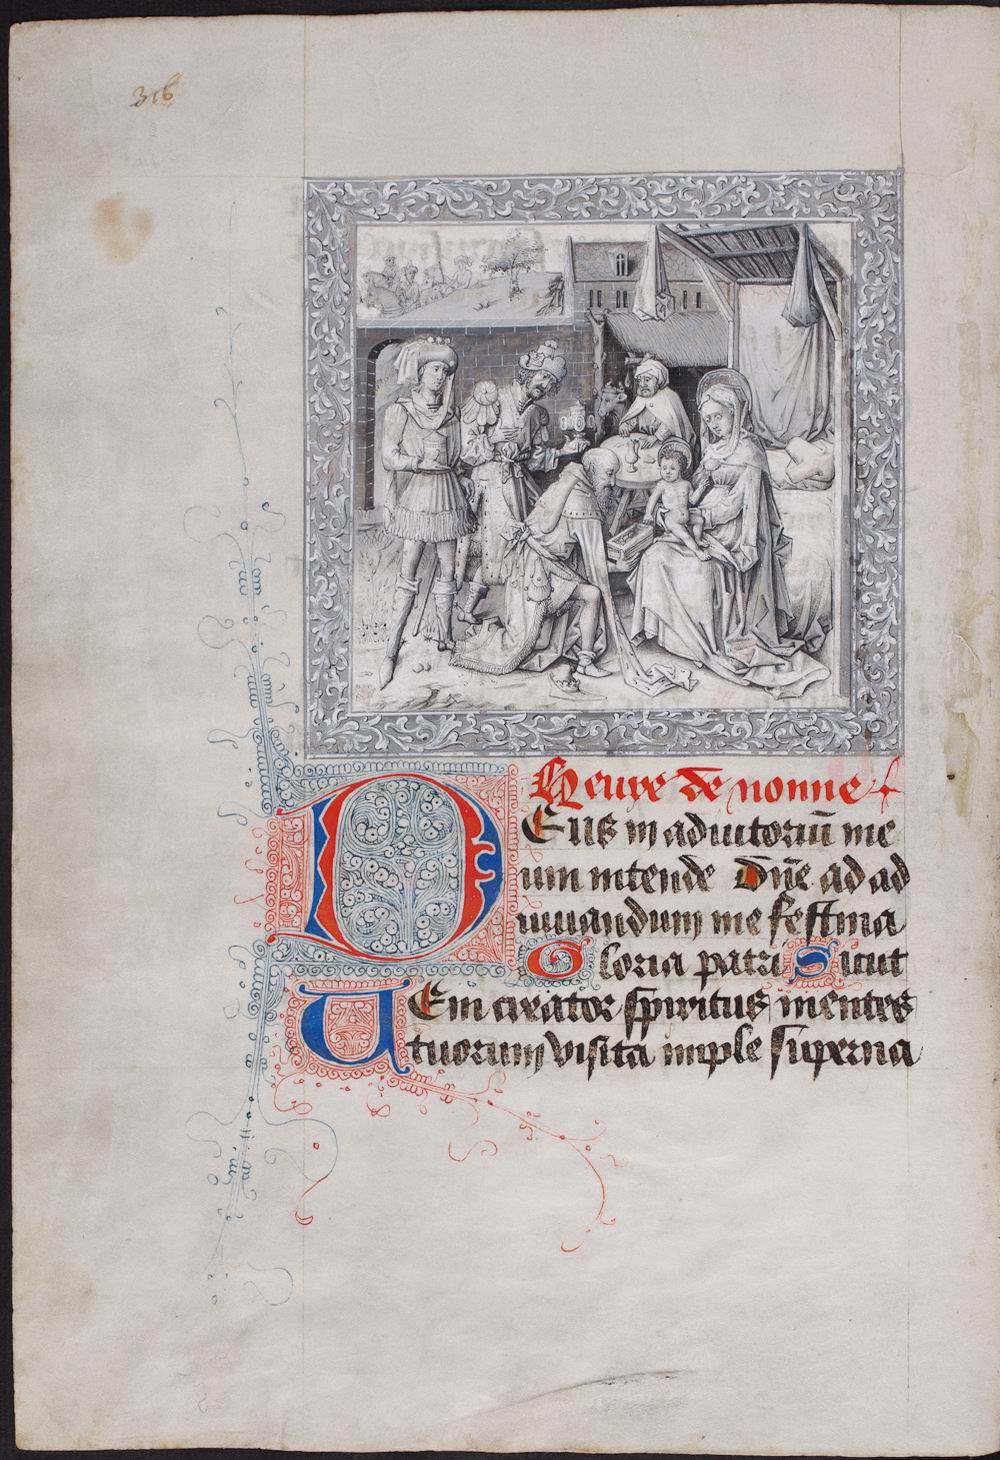 316
Heure de nonne
DEus in adiutoriū me
um intende Dn̄e ad ad
iuuandum me festina
Gloria patri Sicut
UEni creator spiritus mentes
tuorum visita imple superna